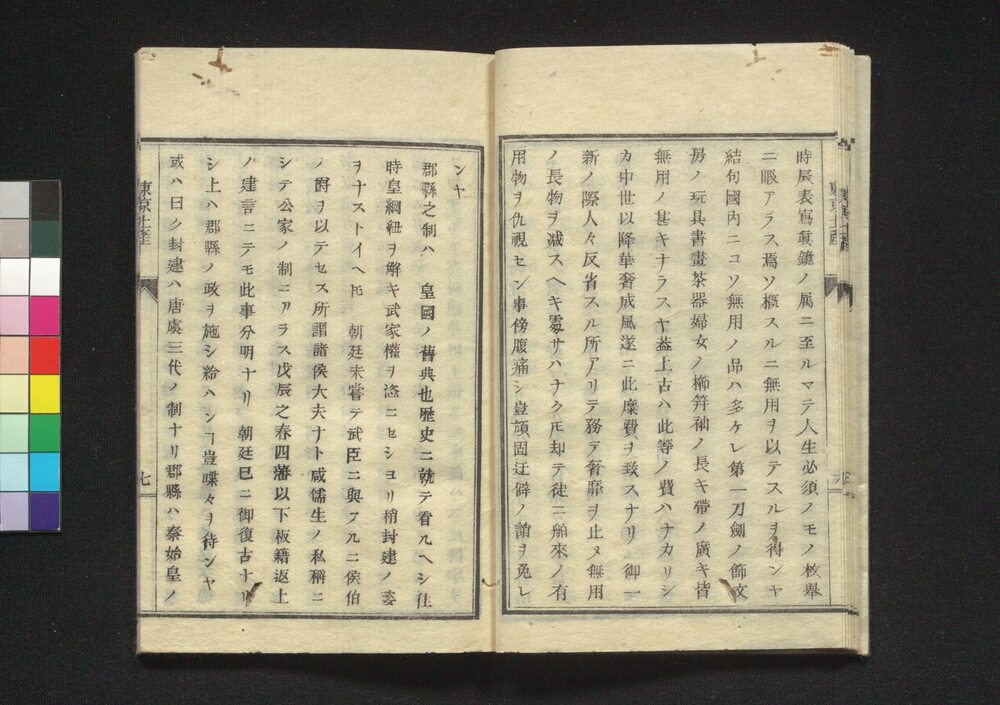 時辰表寫眞鏡ノ属ニ至ルマテ人生必須ノモノ枚舉
ニ暇アラス焉ソ槪スルニ無用ヲ以テスルヲ得ンヤ
結句國内ニコソ無用ノ品ハ多ケレ第一刀劍ノ飾文
房ノ玩具書畫茶器婦女ノ櫛笄袖ノ長キ帶ノ廣キ皆
無用ノ甚キナラスヤ蓋上古ハ此等ノ費ハナカリシ
カ中世以降華奢成風遂ニ此糜費ヲ致スナリ 御一
新ノ際人々反省スル所アリテ務テ奢靡ヲ止メ無用
ノ長物ヲ減スヘキ䖏サハナクモ却テ徒ニ舶來ノ有
用物ヲ仇視セン事傍腹痛シ豈頑固迂僻ノ誚ヲ免レ
ンヤ
郡縣之制ハ 皇國ノ舊典也歴史ニ就テ看ルヘシ往
時皇綱紐ヲ解キ武家權ヲ恣ニセシヨリ稍封建ノ姿
ヲナストイヘトモ 朝廷未嘗テ武臣ニ與フルニ侯伯
ノ爵ヲ以テセス所謂諸侯大夫ナト咸儒生ノ私稱ニ
シテ公家ノ制ニアラス戊辰之春四藩以下板籍返上
ノ建言ニテモ此事分明ナリ 朝廷已ニ御復古ナリ
シ上ハ郡縣ノ政ヲ施シ給ハンヿ豈喋々ヲ待ンヤ
或ハ曰ク封建ハ唐虞三代ノ制ナリ郡縣ハ秦始皇ノ
東京土産
七